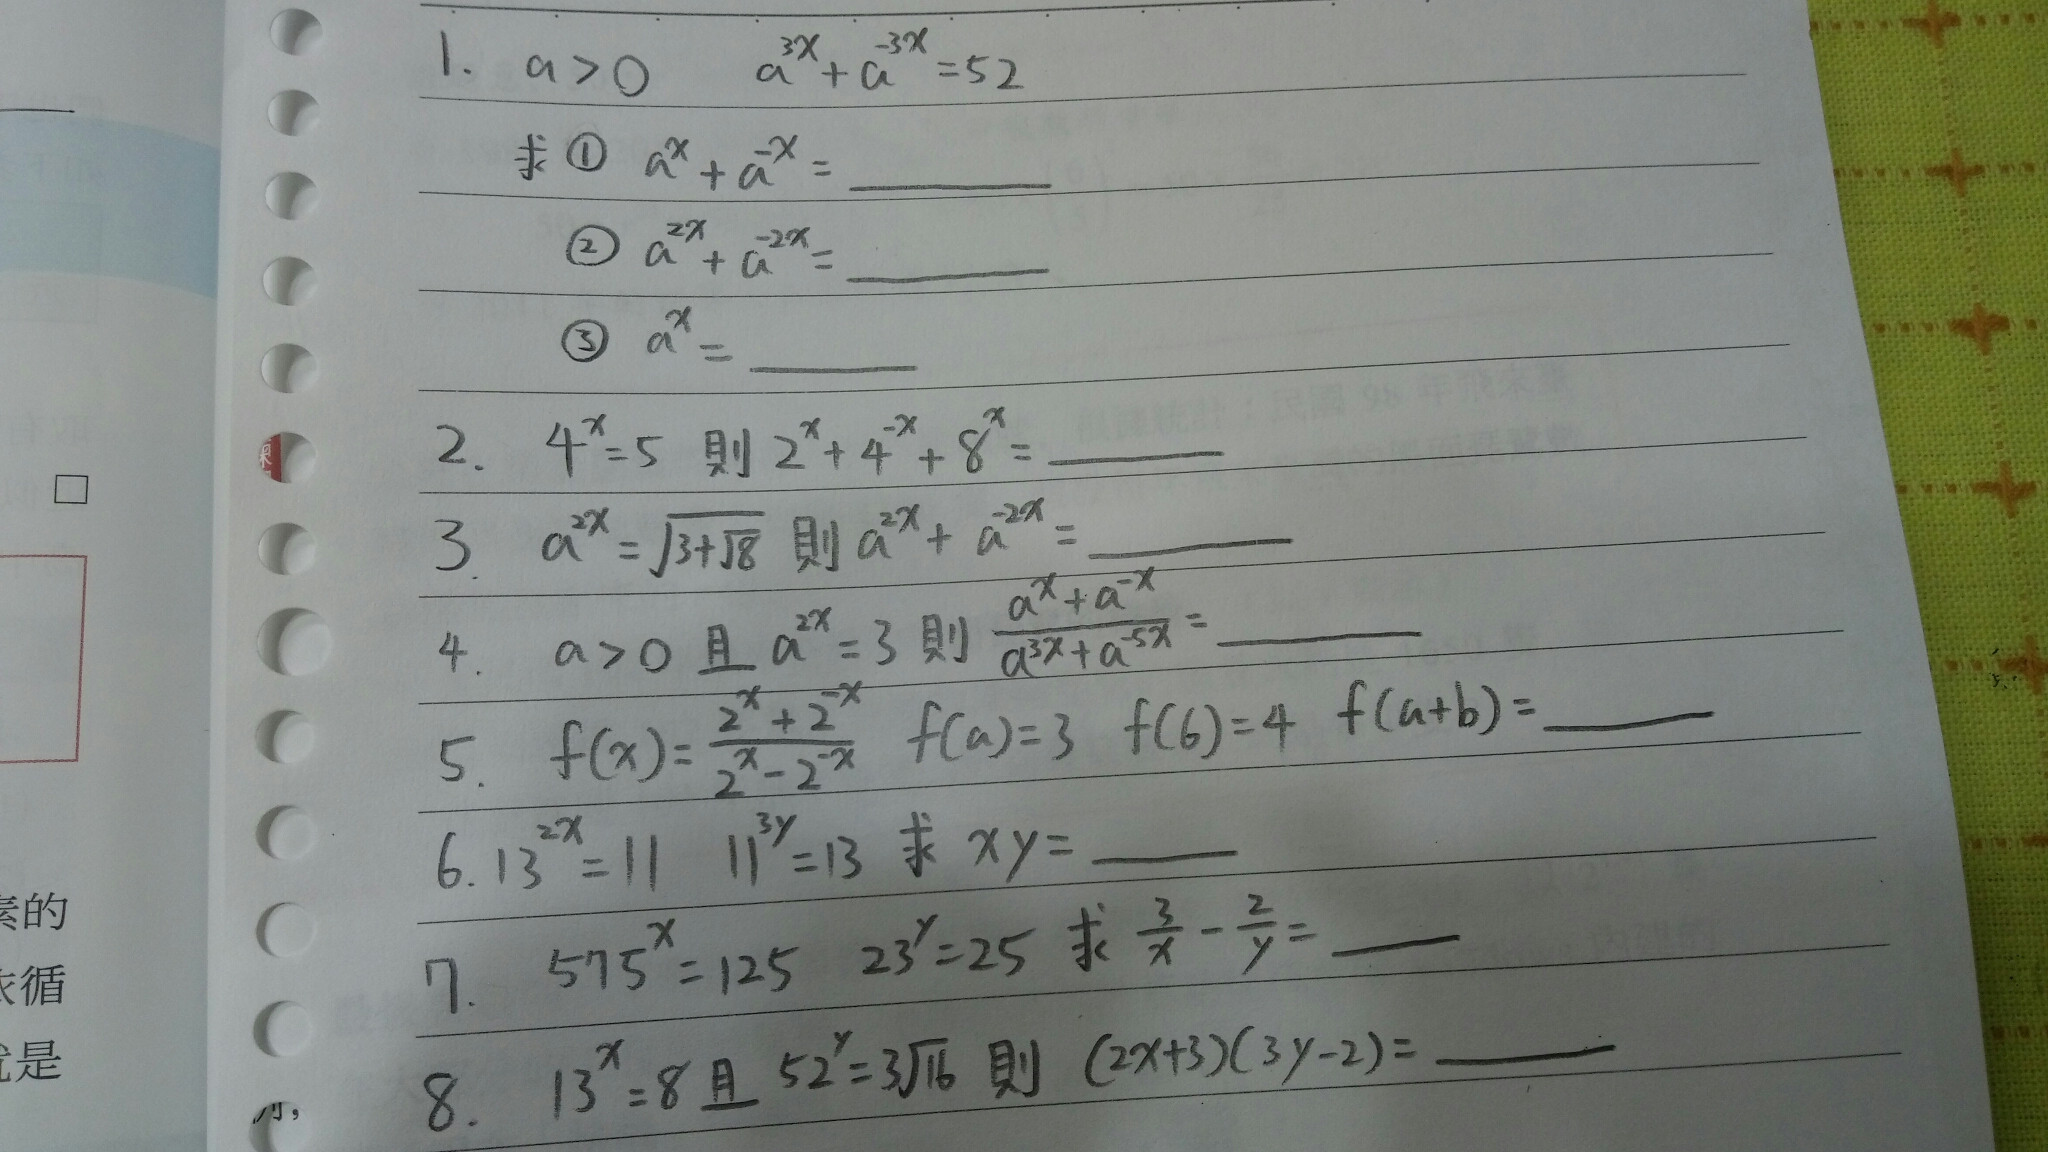 1. a>0 a^{3x}+a^{-3x}=52
求 ① a^x+a^{-x}=
② a^{2x}+a^{-2x}=
③ a^x=
2. 4^x=5 則 2^x+4^{-x}+8^x=
3. a^{2x}=√(3+√8) 則 a^{2x}+a^{-2x}=
4. a>0 且 a^{2x}=3 則 (a^x+a^{-x})/(a^{3x}+a^{-5x})=
5. f(x)=(2^x+2^{-x})/(2^x-2^{-x}) f(a)=3 f(b)=4 f(a+b)=
6. 13^{2x}=11 11^{3y}=13 求 xy=
7. 575^x=125 23^y=25 求 3/x-2/y=
8. 13^x=8 且 52^y=3√16 則 (2x+3)(3y-2)=
素的
依循
就是